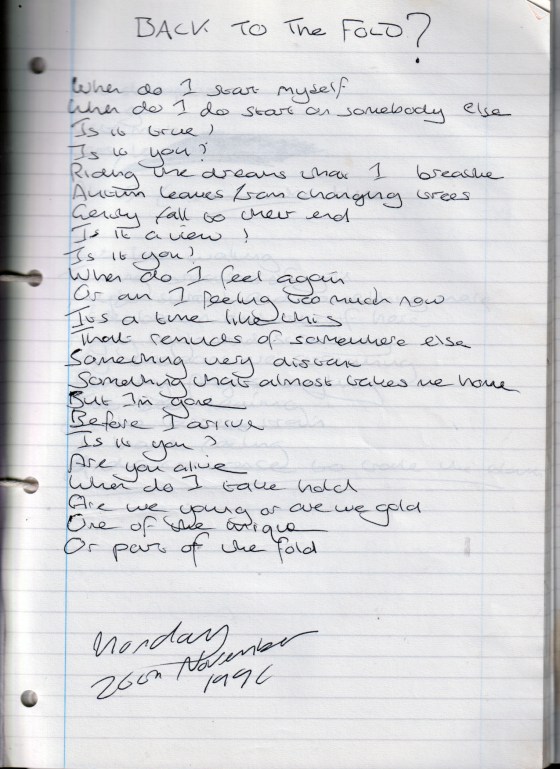 BACK TO The FOLD?
When do I start myself
When do I do start on somebody else
Is it true?
Is it you?
Riding the dreams that I breathe
Autumn leaves from changing trees
Gently fall to their end
Is it a view?
Is it you?
When do I feel again
Or am I feeling too much now
Its a time like this
That reminds of somewhere else
Something very distant
Something that almost takes me home
But Im gone
Before I arrive
Is it you?
Are you alive
When do I take hold
Are we young or are we gold
One of the unique
Or part of the fold
Monday
26th November